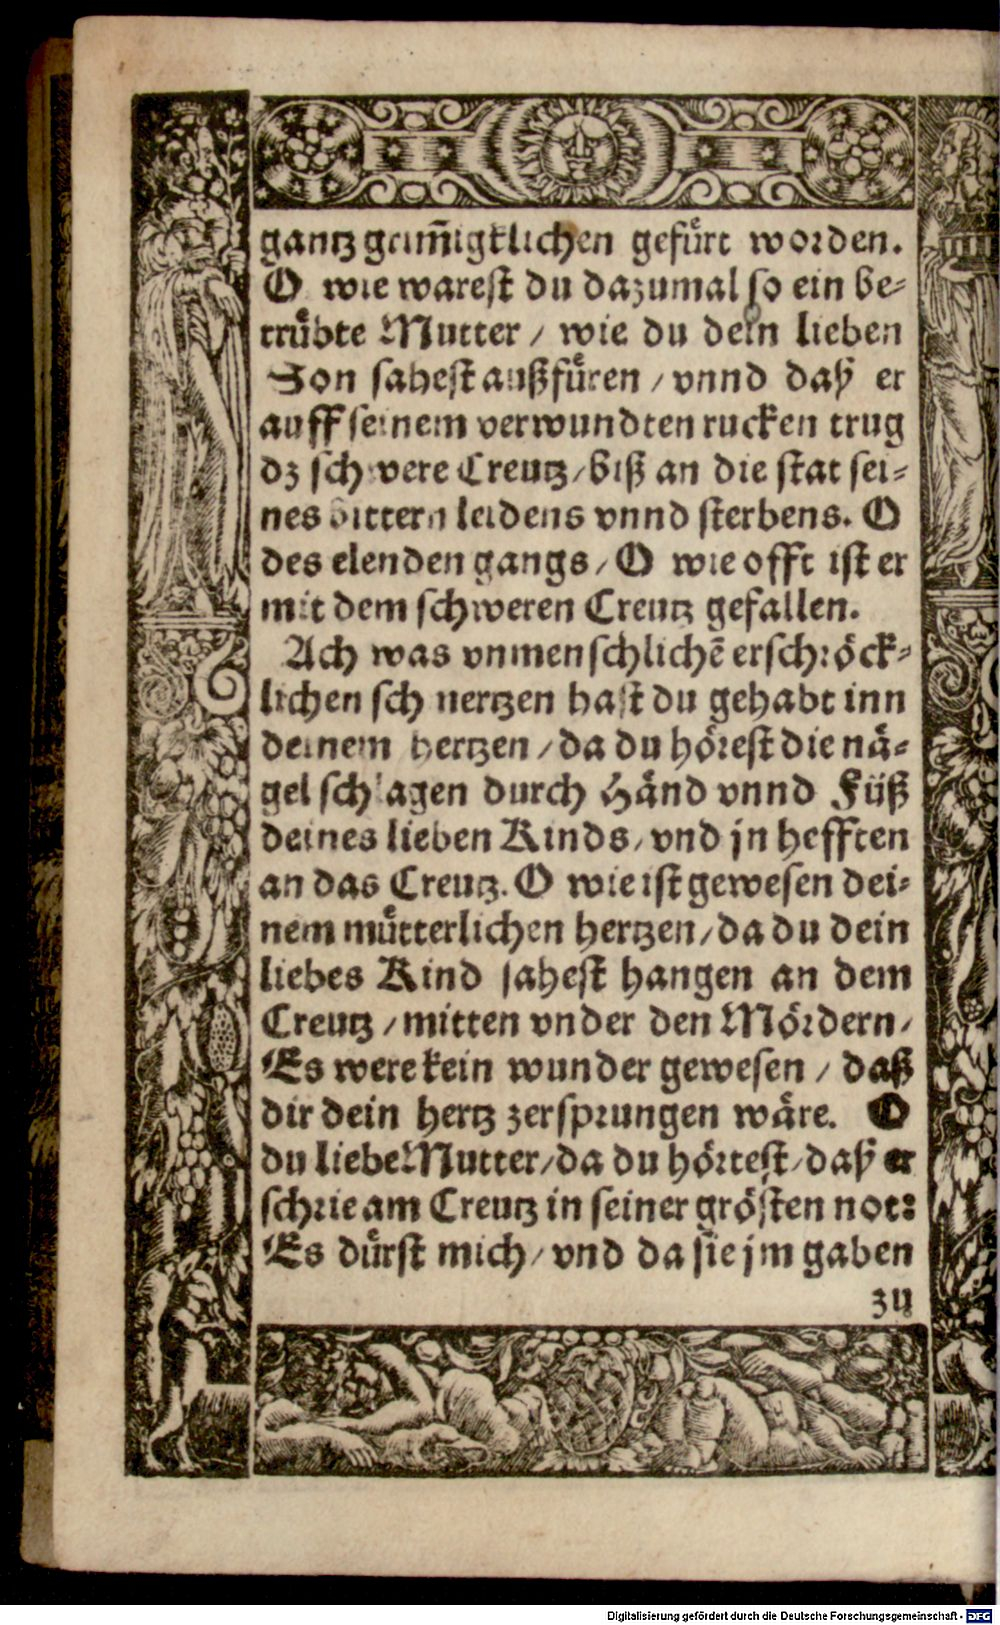 gantz grim̃igklichen gefuͤrt worden.
O wie warest du dazumal so ein be⸗
truͤbte Mutter / wie du dein lieben
Son sahest außfuͤren / vnnd daß er
auff seinem verwundten rucken trug
dz schwere Creutz / biß an die stat sei⸗
nes bittern leidens vnnd sterbens. O
des elenden gangs / O wie offt ist er
mit dem schweren Creutz gefallen.
Ach was vnmenschlichẽ erschröck⸗
lichen schmertzen hast du gehabt inn
deinem hertzen / da du hörest die nä⸗
gel schlagen durch Händ vnnd Füß
deines lieben Kinds / vnd jn hefften
an das Creutz. O wie ist gewesen dei⸗
nem muͤtterlichen hertzen / da du dein
liebes Kind sahest hangen an dem
Creutz / mitten vnder den Mördern /
Es were kein wunder gewesen / daß
dir dein hertz zersprungen wäre. O
du liebe Mutter / da du hörtest / daß er
schrie am Creutz in seiner grösten not:
Es duͤrst mich / vnd da sie jm gaben
zů
Digitalisierung gefördert durch die Deutsche Forschungsgemeinschaft - DFG